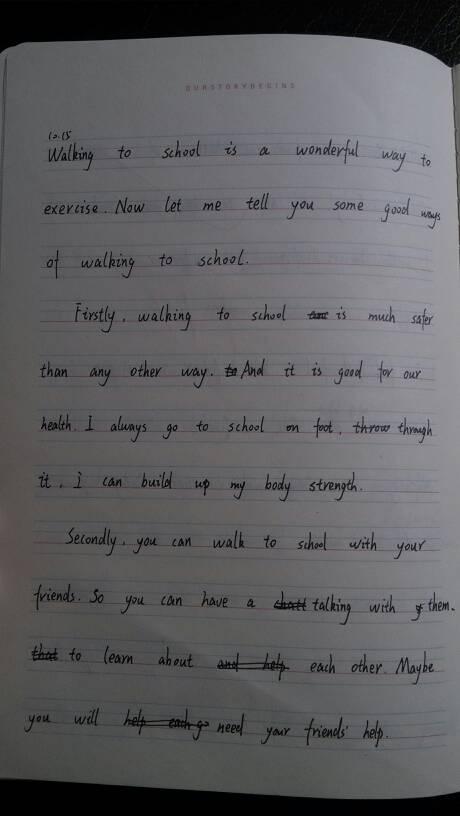 OURSTORYBEGINS
10.15
Walking to school is a wonderful way to
exercise. Now let me tell you some good ways
of walking to school.
Firstly, walking to school is much safer
than any other way. And it is good for our
health. I always go to school on foot, through
it, I can build up my body strength.
Secondly, you can walk to school with your
friends. So you can have a talking with them.
to learn about each other. Maybe
you will need your friends' help.